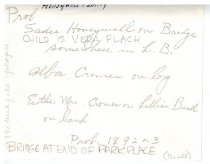 Prob
Sadie Honeywell on Bridge
CHILD IS VERA FLACH
somewhere in L.B.
Alba Cremer on log
Esther Mrs. Cromer or Lillian Beatl
on bank
Prob 1892 or 3
BRIDGE AT END OF PARK PLACE